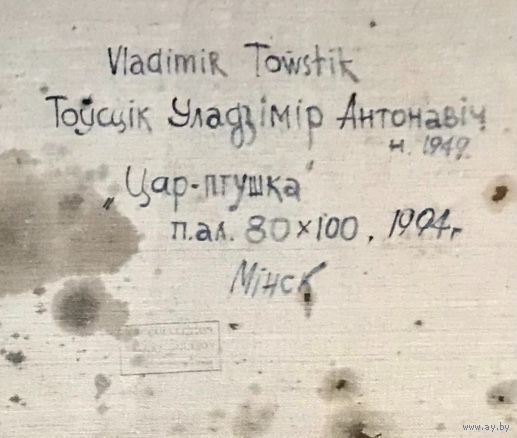 Vladimir Towstik
Тоўсцік Уладзімір Антонавіч
н. 1949.
„Цар-птушка"
п.ал. 80×100, 1994г
Мінск
www.ay.by